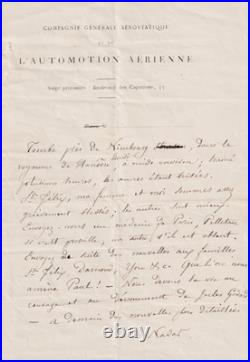 COMPAGNIE GÉNÉRALE AÉROSTATIQUE
ET DE
L'AUTOMOTION AÉRIENNE
Siége provisoire: Boulevard des Capucines, 35
Tombé près de Nienbourg, dans le
royaume de Hanovre, à midi environ; traîné
plusieurs heures, les ancres étant brisées.
St Félix, ma femme et moi sommes assez
grièvement blessés; les autres sont mieux.
Envoyez-nous un médecin de Paris,
s'il est possible, un autre, s'il est absent.
Envoyez de suite des nouvelles aux familles
St Félix, Yon &
Paul! —
courage et au dévouement de Jules Godard
— à demain des nouvelles plus détaillées
Nadar